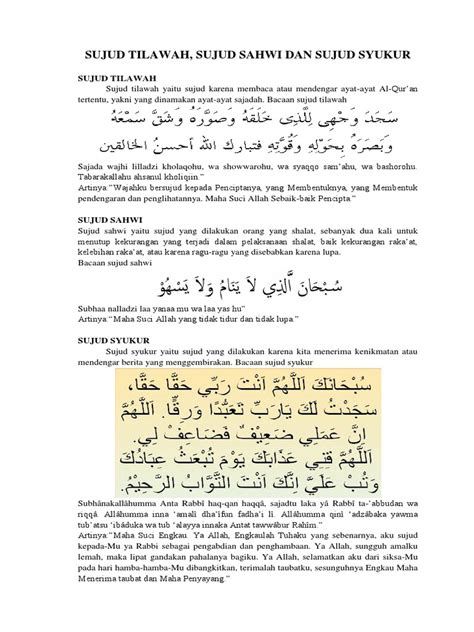 SUJUD TILAWAH, SUJUD SAHWI DAN SUJUD SYUKUR
SUJUD TILAWAH
Sujud tilawah yaitu sujud karena membaca atau mendengar ayat-ayat Al-Qur'an
tertentu, yakni yang dinamakan ayat-ayat sajadah. Bacaan sujud tilawah
سَجَدَ وَجْهِى لِلَّذِى خَلَقَهُ وَصَوَّرَهُ وَشَقَّ سَمْعَهُ
وَبَصَرَهُ بِحَوْلِهِ وَقُوَّتِهِ فتبارك الله أحسن الخالقين
Sajada wajhi lilladzi kholaqohu, wa showwarohu, wa syaqqo sam'ahu, wa bashorohu.
Tabarakallahu ahsanul kholiqiin."
Artinya:"Wajahku bersujud kepada Penciptanya, yang Membentuknya, yang Membentuk
pendengaran dan penglihatannya. Maha Suci Allah Sebaik-baik Pencipta."
SUJUD SAHWI
Sujud sahwi yaitu sujud yang dilakukan orang yang shalat, sebanyak dua kali untuk
menutup kekurangan yang terjadi dalam pelaksanaan shalat, baik kekurangan raka'at,
kelebihan raka'at, atau karena ragu-ragu yang disebabkan karena lupa.
Bacaan sujud sahwi
سُبْحَانَ الَّذِي لاَ يَنَامُ وَلاَ يَسْهُوْ
Subhaa nalladzi laa yanaa mu wa laa yas hu"
Artinya:"Maha Suci Allah yang tidak tidur dan tidak lupa."
SUJUD SYUKUR
Sujud syukur yaitu sujud yang dilakukan karena kita menerima kenikmatan atau
mendengar berita yang menggembirakan. Bacaan sujud syukur
سُبْحَانَكَ اَللَّهُمَّ اَنْتَ رَبِّي حَقًّا حَقًّا،
سَجَدْتُ لَكَ يَارَبِّ تَعَبُّدًا وَرِقًّا. اَللَّهُمَّ
اِنَّ عَمَلِي ضَعِيْفٌ فَضَاعِفْ لِي.
اَللَّهُمَّ قِنِي عَذَابَكَ يَوْمَ تُبْعَثُ عِبَادُكَ
وَتُبْ عَلَيَّ اِنَّكَ اَنْتَ التَّوَّابُ الرَّحِيْمُ.
Subhânakallâhumma Anta Rabbî haq-qan haqqâ, sajadtu laka yâ Rabbî ta-'abbudan wa
riqqâ. Allâhumma inna 'amalî dha'îfun fadha'i lî. Allâhumma qinî 'adzâbaka yawma
tub'atsu 'ibâduka wa tub 'alayya innaka Antat tawwâbur Rahîm."
Artinya:"Maha Suci Engkau. Ya Allah, Engkaulah Tuhaku yang sebenarnya, aku sujud
kepada-Mu ya Rabbi sebagai pengabdian dan penghambaan. Ya Allah, sungguh amalku
lemah, maka lipat gandakan pahalanya bagiku. Ya Allah, selamatkan aku dari siksa-Mu
pada hari hamba-hamba-Mu dibangkitkan, terimalah taubatku, sesunguhnya Engkau Maha
Menerima taubat dan Maha Penyayang."